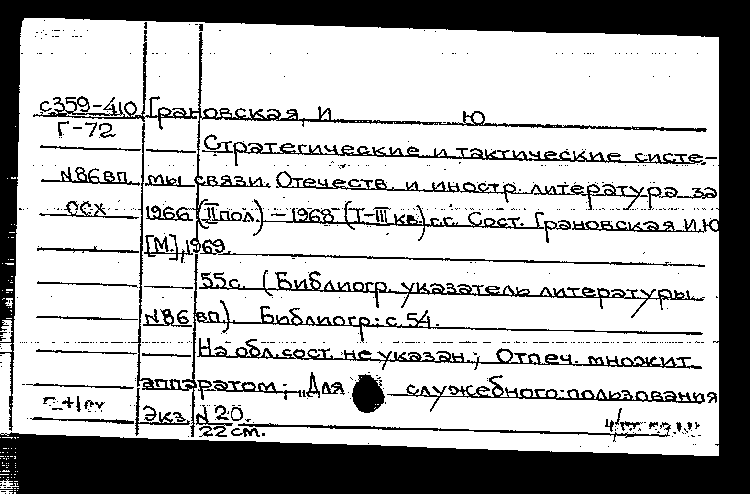 с359-410 Грановская, И Ю
Г-72
Стратегические и тактические систе-
N86вп. мы связи. Отечеств. и иностр. литература за
ОСХ 1966 (II пол) - 1968 (I-III кв.) г.г. Сост. Грановская И.Ю
[М.], 1969.
55с. (Библиогр. указатель литературы
N86 вп.). Библиогр: с. 54.
На обл. сост. не указан.; Отпеч. множит.
аппаратом; „Для служебного пользования
Экз. N 20.
22 см.